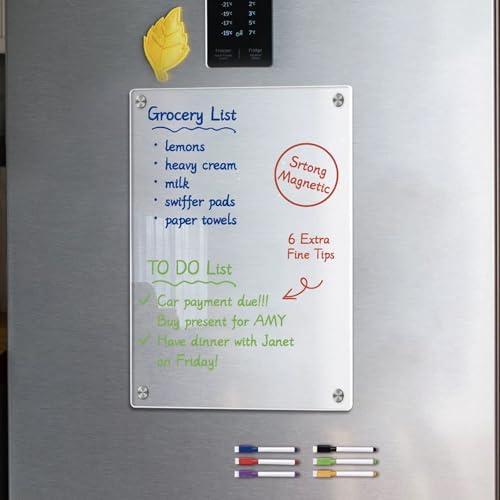 -21°C 2°C
-19°C 3°C
-17°C 5°C
-15°C 7°C
Freezer Fridge
Grocery List
• lemons
• heavy cream
• milk
• swiffer pads
• paper towels
Srtong
Magnetic
6 Extra
Fine Tips
TO DO List
✓ Car payment due!!!
Buy present for AMY
✓ Have dinner with Janet
on Friday!